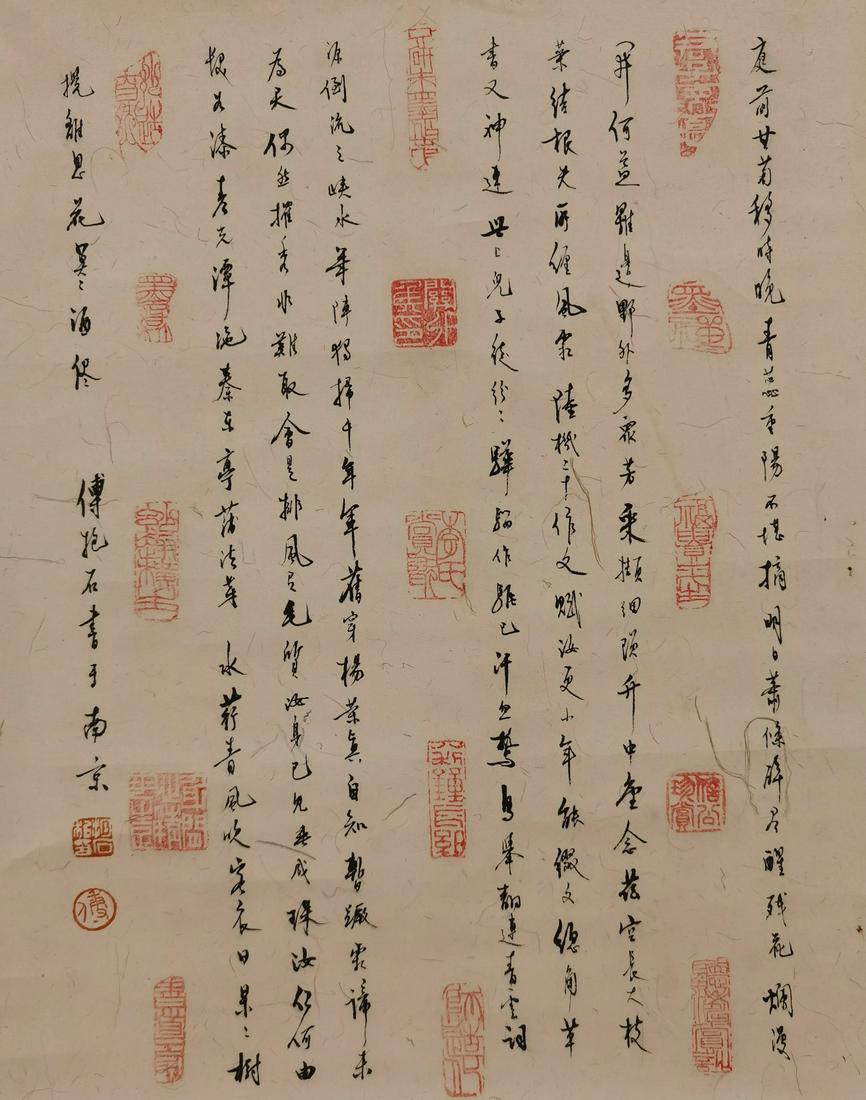 庭前甘菊移時晚青蕊重陽不堪摘明日蕭條醉尽醒残花爛漫
開何益籬邊野外多衆芳采擷細瑣升中堂念茲空長大枝
葉結根失所纏風霜陸機二十作文賦汝更小年能缀文總角草
書又神速世上兒子徒紛々驊騮作駒已汗血鷙鳥舉翮連青雲詞
源倒流三峽水筆陣獨掃千年軍舊穿楊葉真自知暫蹶霜蹄未
為失偶然擢秀非難取會是排風有毛質汝身已見垂成珠汝伯何由
髮如漆春光潭沱秦東亭蒲芽水荇青風吹客衣日杲々樹
攪離思花冥々酒盡
傅抱石書于南京
傅